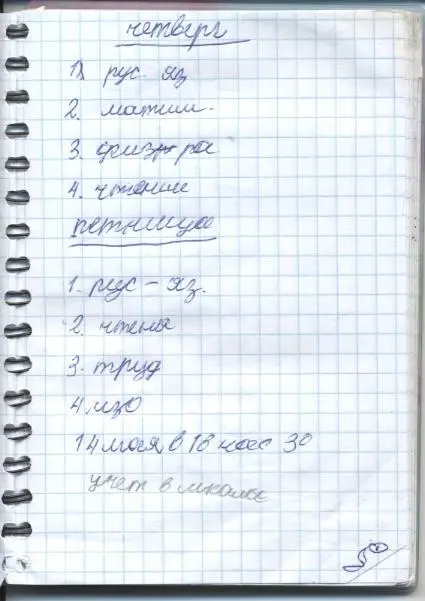 четверг
1. рус. яз
2. матем.
3. физ-ра
4. чтение
петница
1. рус - яз.
2. чтена
3. труд
4. изо
14 мая в 18 час 30
учет в школе